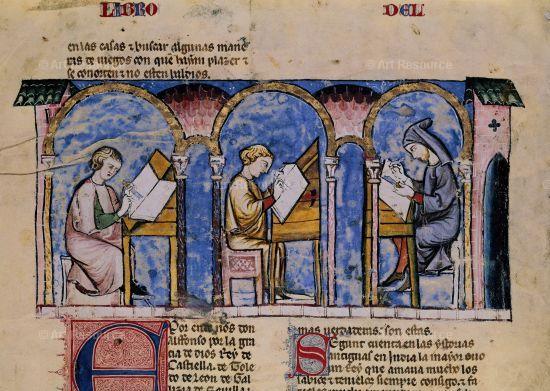 LIBRO DEL
en las casas ⁊ buscar algunas mane
ras de iuegos con que hayan plazer ⁊
se conorten ⁊ no esten baldios.
Por ende nos don
alffonso por la gra
cia de dios Rey de
Castiella. de Tole
do de leon de Gal
mas uerdaderas. son estas.
Segunt cuenta en las ystorias
antiguas en India la mayor ouo
un Rey que amaua mucho los
sabios ⁊ tenielos siempre consigo. ⁊ fa
Art Resource